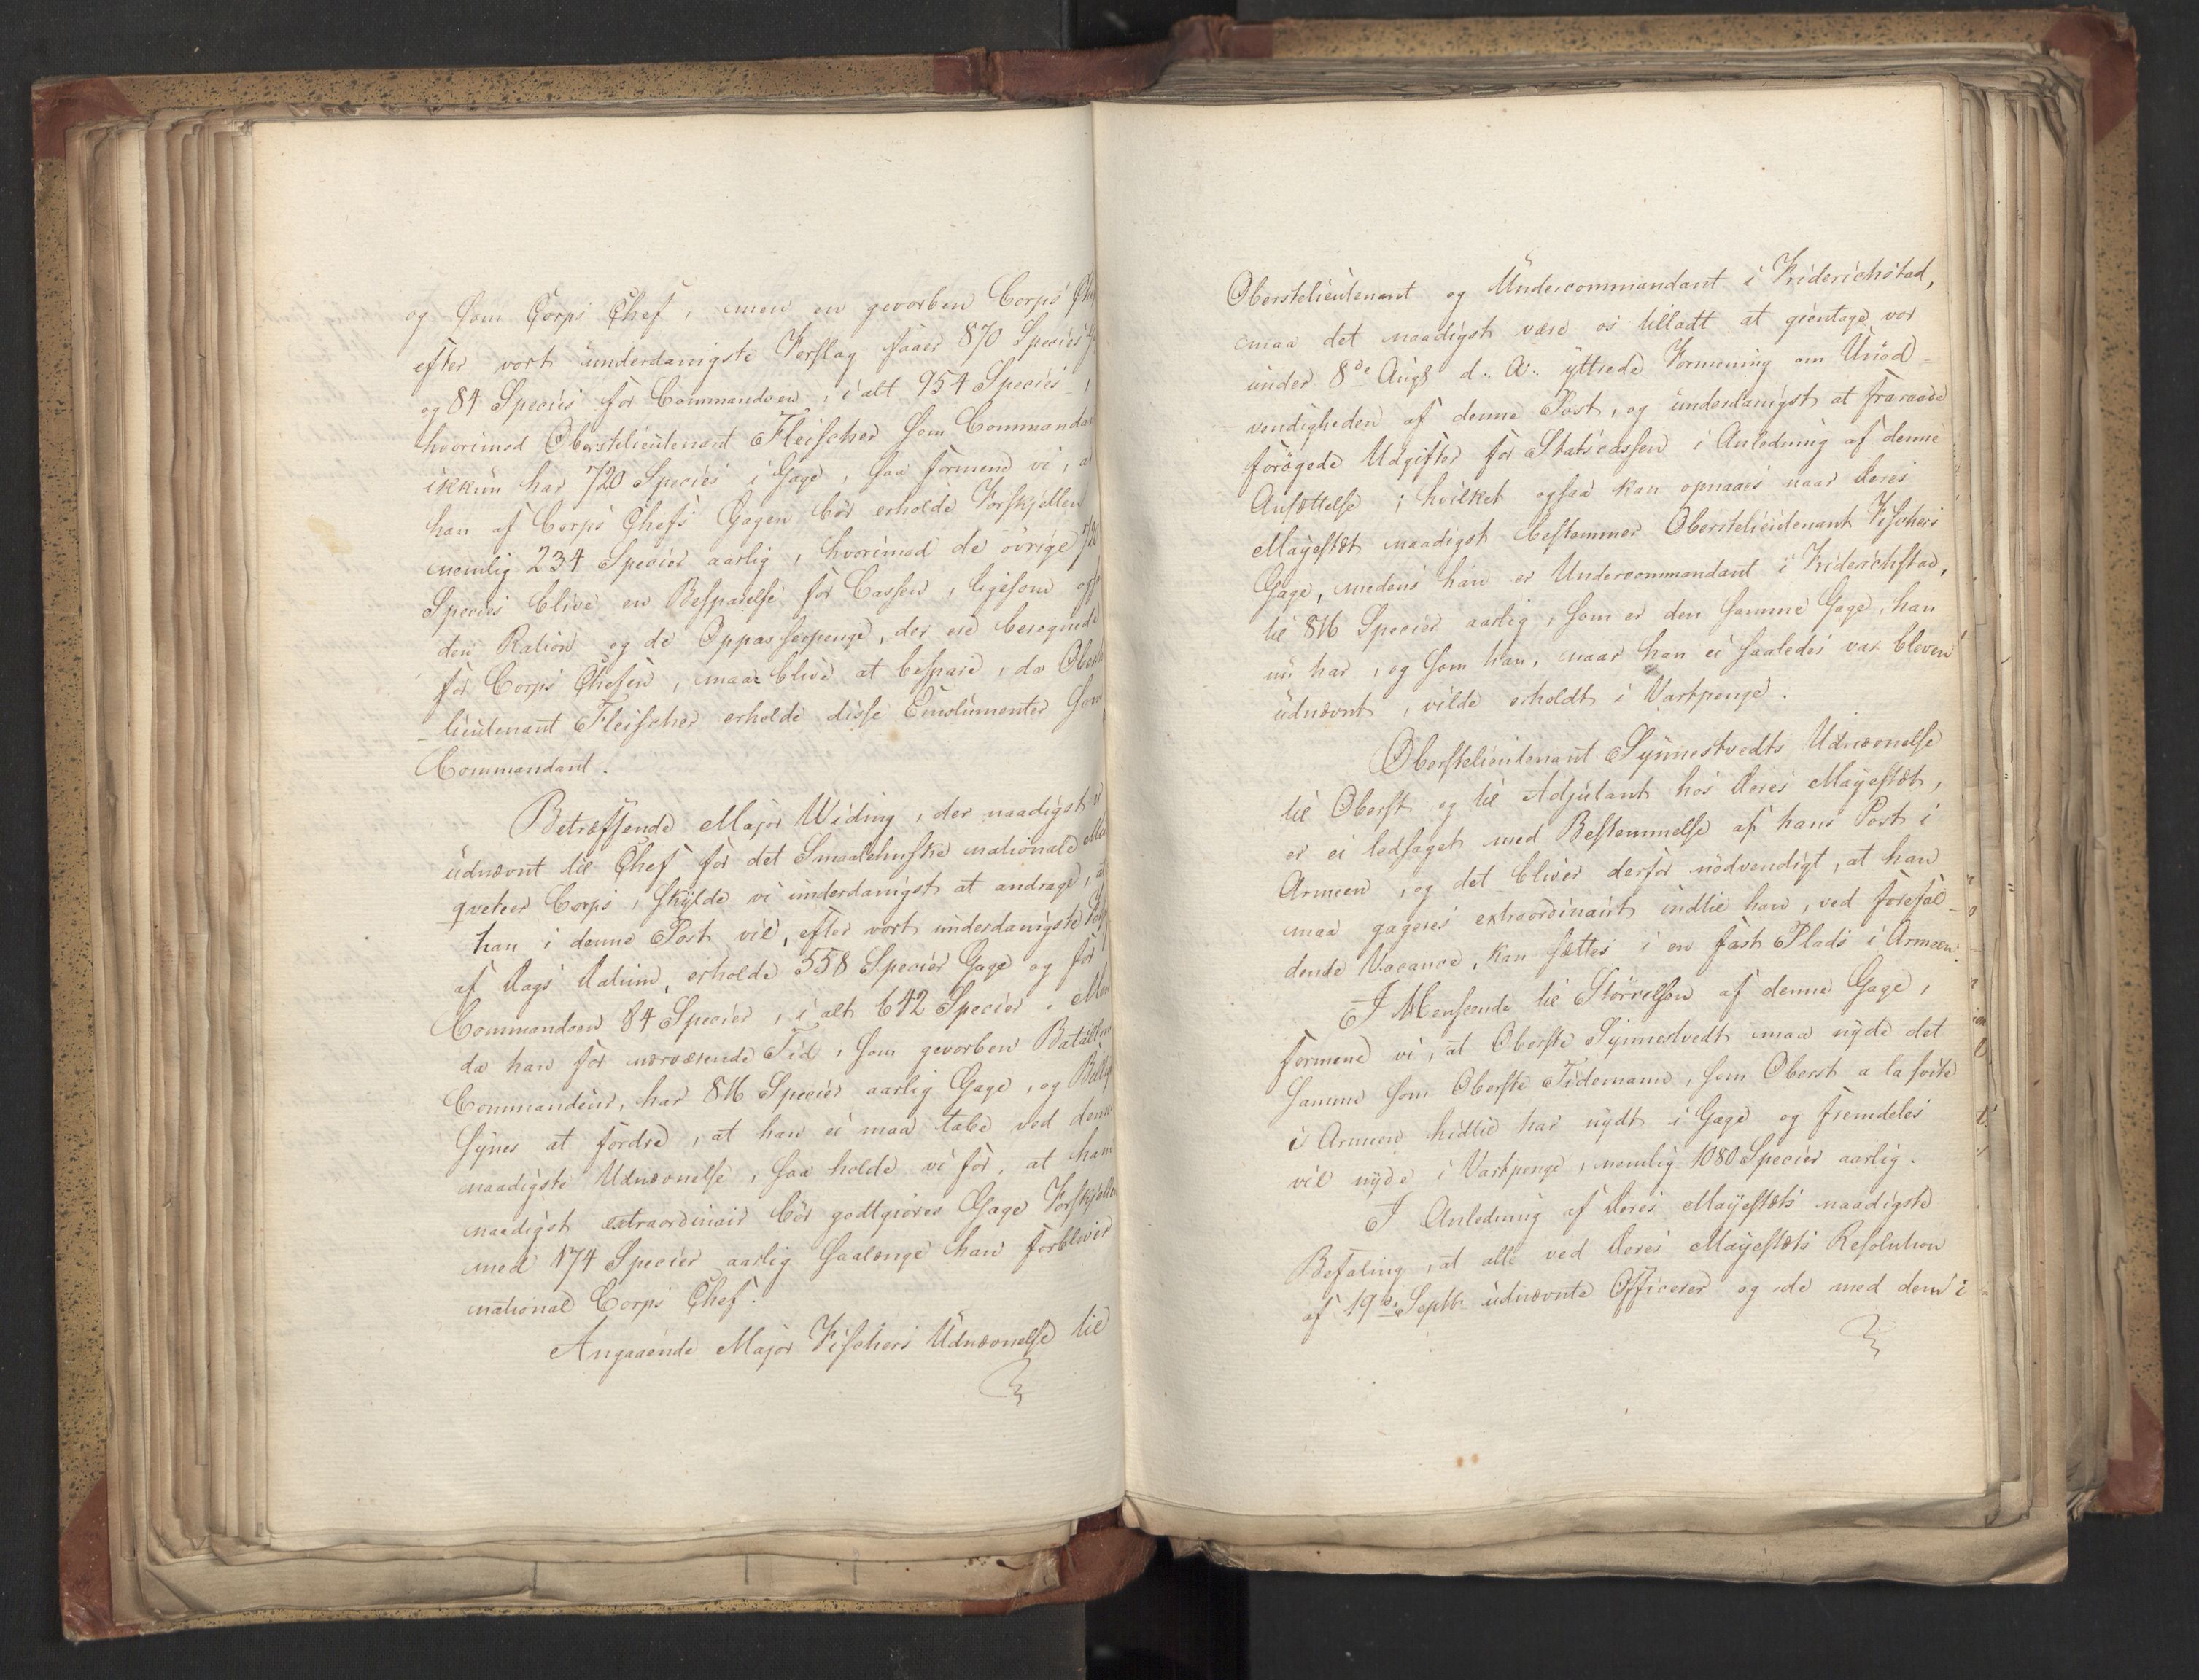 og som Corps Chef, men en gevorben Corps Chef
efter vort underdanigste Forslag faaer 870 Species
og 84 Species for Commandoen, i alt 954 Species,
hvorimod Oberstelieutenant Fleischer som Commandant
ikkun har 720 Species i Gage, saa formene vi, at
han af Corps Chefs Gagen bör erholde Forskjellen
nemlig 234 Species aarlig, hvorimod de övrige
Species blive en Besparelse for Cassen, ligesom og
den Ration og de Oppasserpenge, der ere beregnede
for Corps Chefen, maae blive at bespare, da Oberste-
lieutenant Fleischer erholde disse Emolumenter som
Commandant.
Betræffende Major Widing, der naadigst er
udnævnt til Chef for det Smaalehnske nationale Mus-
queteer Corps, skulde vi underdanigst at andrage, at
han i denne Post vil, efter vort underdanigste
af Dags Datum, erholde 558 Species Gage og for
Commandoen 84 Species, i alt 642 Species. Men
da han for nærværende Tid, som gevorben Batallions
Commandeur, har 816 Species aarlig Gage, og Billighed
synes at fordre, at han ei maa tabe ved denne
naadigste Udnævnelse, saa holde vi for, at ham
naadigst extraordinair bör godtgiöres Gage Forskjellen
med 174 Species aarlig saalænge han forbliver
national Corps Chef.
Angaaende Major Fischers Udnævnelse til
Oberstelieutenant og Undercommandant i Friderichstad,
maa det naadigst være os tilladt at gientage vor
under 8de Augs d: A: yttrede Formening om Unöd-
vendigheden af denne Post, og underdanigst at fraraade
forögede Udgifter for Statscassen i Anledning af denne
Ansættelse; hvilket ogsaa kan opnaaes naar Deres
Mayestæt naadigst bestemmer Oberstelieutenant Fischers
Gage, medens han er Undercommandant i Friderichstad,
til 816 Species aarlig, som er den samme Gage, han
nu har, og som han, naar han ei saaledes var bleven
udnævnt, vilde erholdt i Vartpenge.
Oberstelieutenant Synnestvedts Udnævnelse
til Oberst og til Adjutant hos Deres Mayestæt,
er ei ledsaget med Bestemmelse af hans Post i
Armeen, og det bliver derfor nödvendigt, at han
maa gageres extraordinairt indtil han, ved forefal-
dende Vacance, kan sættes i en fast Plads i Armeen.
I Henseende til Störrelsen af denne Gage,
formene vi, at Oberste Synnestvedt maa nyde det
samme som Oberste Tidemann, som Oberst a la suite
i Armeen hidtil har nydt i Gage og fremdeles
vil nyde i Vartpenge, nemlig 1080 Species aarlig.
I Anledning af Deres Mayestæts naadigste
Befaling, at alle ved Deres Mayestæts Resolution
af 19de Septb. udnævnte Officerer og de med dem i